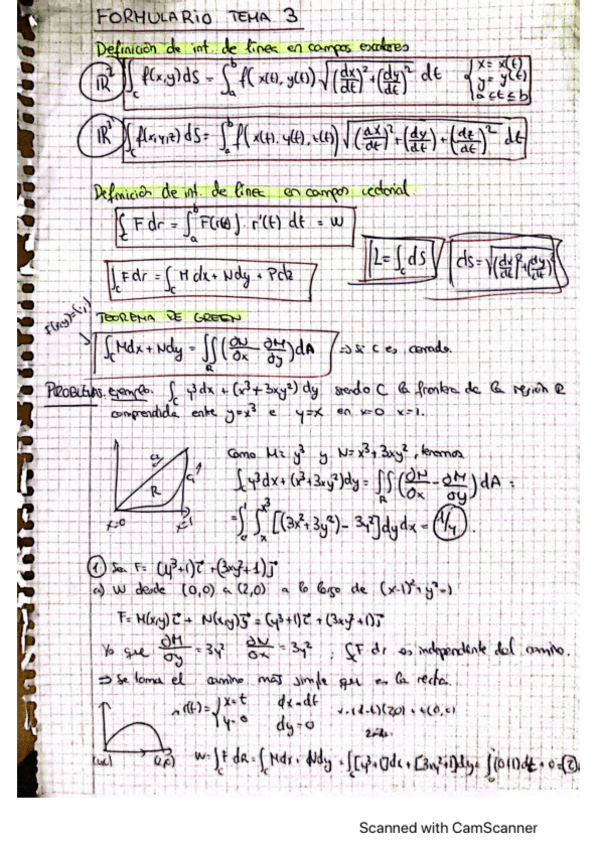 FORMULARIO TEMA 3
Definición de int. de línea en campos escalares
IR² ∫c f(x,y) ds = ∫a^b f( x(t), y(t)) √((dx/dt)² + (dy/dt)²) dt { x = x(t) y = y(t) a ≤ t ≤ b
IR³ ∫c f(x,y,z) ds = ∫a^b f( x(t), y(t), z(t)) √((dx/dt)² + (dy/dt)² + (dz/dt)²) dt
Definición de int. de línea en campos vectorial.
∫c F dr = ∫a^b F(r(t)) · r'(t) dt = W
L = ∫c ds
ds = √((dx/dt)² + (dy/dt)²)
∫c F dr = ∫c M dx + N dy + P dz
TEOREMA DE GREEN
∫c Mdx + Ndy = ∬R (∂N/∂x - ∂M/∂y) dA ⇒ si C es cerrado.
PROBLEMAS. ejemplo: ∫c y³dx + (x³+3xy²) dy siendo C la frontera de la región R
comprendida entre y=x³ e y=x en x=0 x=1.
Como M= y³ y N= x³+3xy², tenemos
∫c y³dx + (x³+3xy²)dy = ∬R (∂N/∂x - ∂M/∂y) dA =
= ∫0^1 ∫x^x³ [(3x²+3y²) - 3y²] dy dx = 1/4.
R
x=0 x=1
① Sea F = (y³+1)i + (3xy²+1)j
a) W desde (0,0) a (2,0) a lo largo de (x-1)²+y²=1
F = M(x,y)i + N(x,y)j = (y³+1)i + (3xy²+1)j
Ya que ∂M/∂y = 3y² ∂N/∂x = 3y², ∫c F dr es independiente del camino.
⇒ se toma el camino más simple que es la recta.
r(t) = { x=t y=0 dx=dt dy=0
(0,0) (2,0)
W = ∫c F dR = ∫c Mdx + Ndy = ∫c [y³+1]dx + [3xy²+1]dy = ∫0 (0+1)dt + 0 = 2
Scanned with CamScanner